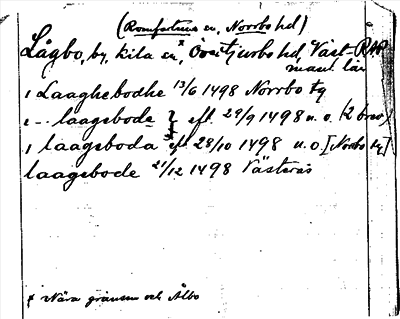 (Romfartuna sn, Norrbo hd)
Lågbo, by, Kila sn,ˣ Övertjurbo hd, Väst- RAP
manl. län
i Laaghebodhe 13/6 1498 Norrbo tg
i -- laagebode eft 29/9 1498 u. o. (2 brev)
i laagsboda eft 28/10 1498 u. o [Norbo tg]
laagebode 21/12 1498 Västerås
x Nära gränsen och Ålbo